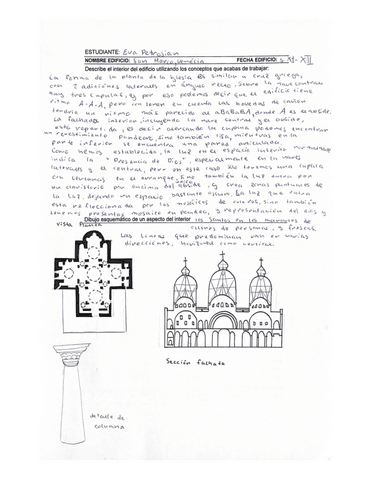 ESTUDIANTE: Eva Petrosian
NOMBRE EDIFICIO: San Marco, Venecia FECHA EDIFICIO: s. XI-XII
Describe el interior del edificio utilizando los conceptos que acabas de trabajar:
La forma de la planta de la iglesia es similar a cruz griega,
con 2 adiciones laterales en ángulo recto. Sobre la nave central
hay tres cúpulas, es por eso podemos decir que el edificio tiene
ritmo A-A-A, pero con tener en cuenta las bovedas de cañón
tendría un ritmo más parecido al aBaBaBA, donde A es el ábside.
La fachada interior incluyendo la nave central y el ábside,
está repartida, es decir acercando la cúpula podemos encontrar
un revestimiento sino también liso, mientras en la
parte inferior se encuentra una pared articulada.
Como hemos establecido, la luz en el espacio interior
indica la "Presencia de Dios", especialmente en la nave
lateral y el central, pero en este caso tenemos una cúpula
con ventanas en el arranque, sino también la luz entra por
un claristorio por encima del ábside, y crea zonas puntuales de
la luz, dejando un espacio bastante oscuro. La luz que entra
está refleccionada por los mosaicos de colores, sino también
tenemos presentes mosaico en paredes, y representación del dios y
Dibujo esquemático de un aspecto del interior los santos en los mosaicos de
vista Planta
y frescos.
Las líneas que predominan van en varias
direcciones, horizontal como vertical.
Sección fachada
detalle de
columna